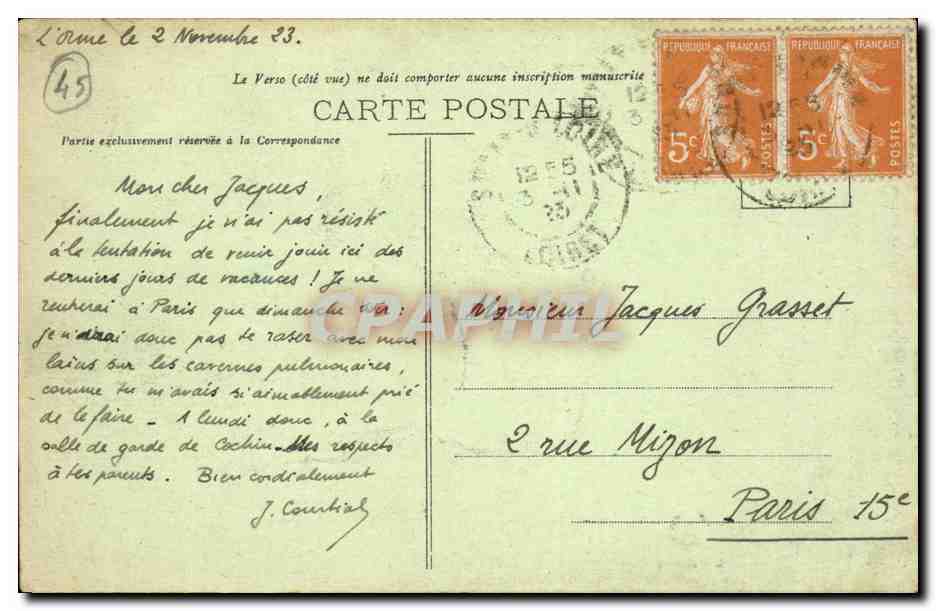 L'Orme le 2 Novembre 23.
45
Le Verso (côté vue) ne doit comporter aucune inscription manuscrite
CARTE POSTALE
Partie exclusivement réservée à la Correspondance
RÉPUBLIQUE FRANÇAISE
5c
POSTES
RÉPUBLIQUE FRANÇAISE
5c
POSTES
12 55
3 -11
23
LOIRET
Mon cher Jacques,
finalement je n'ai pas résisté
à la tentation de venir jouir ici des
derniers jours de vacances ! Je ne
rentrerai à Paris que dimanche soir :
je n'aurai donc pas te raser avec mon
laïus sur les cavernes pulmonaires,
comme tu m'avais si aimablement prié
de le faire - A lundi donc, à la
salle de garde de Cochin - Mes respects
à tes parents. Bien cordialement
J. Courtial
Monsieur Jacques Grasset
2 rue Mizon
Paris 15e
CPAPHIL